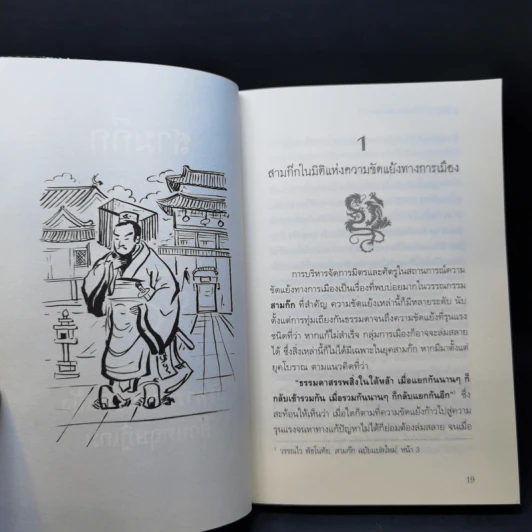 1
สามก๊กในมิติแห่งความขัดแย้งทางการเมือง
การบริหารจัดการมิตรและศัตรูในสถานการณ์ความ
ขัดแย้งทางการเมืองเป็นเรื่องที่พบบ่อยมากในวรรณกรรม
สามก๊ก ที่สำคัญ ความขัดแย้งเหล่านี้ก็มีหลายระดับ นับ
ตั้งแต่การทุ่มเถียงกันธรรมดาจนถึงความขัดแย้งที่รุนแรง
ชนิดที่ว่า หากแก้ไม่สำเร็จ กลุ่มการเมืองก็อาจจะล่มสลาย
ได้ ซึ่งสิ่งเหล่านี้ก็ไม่ได้มีเฉพาะในยุคสามก๊ก หากมีมาตั้งแต่
ยุคโบราณ ตามแนวคิดที่ว่า
"ธรรมดาสรรพสิ่งในใต้หล้า เมื่อแยกกันนานๆ ก็
กลับเข้ารวมกัน เมื่อรวมกันนานๆ ก็กลับแยกกันอีก"¹ ซึ่ง
สะท้อนให้เห็นว่า เมื่อใดก็ตามที่ความขัดแย้งก้าวไปสู่ความ
รุนแรงจนหาทางแก้ปัญหาไม่ได้ก็ย่อมต้องล่มสลาย จนเมื่อ
¹ วรรณไว พัธโนทัย, สามก๊ก ฉบับแปลใหม่, หน้า 3
19